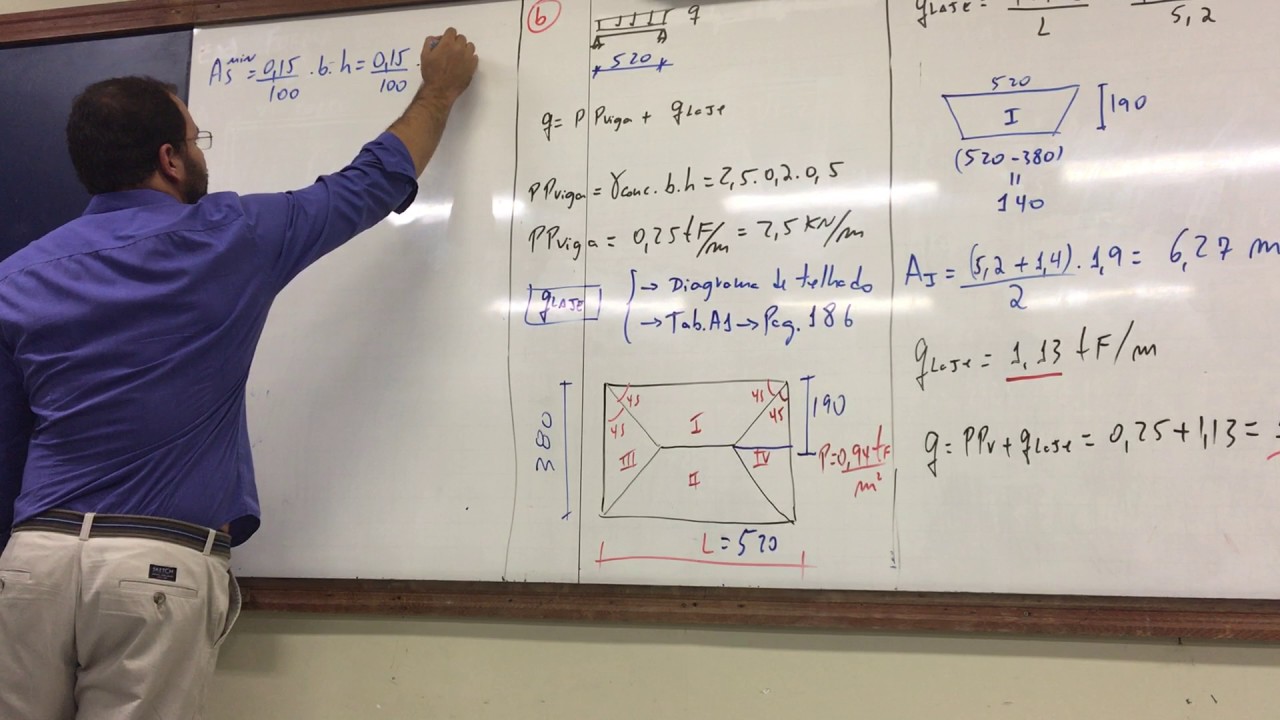 As min = 0,15/100 . b . h = 0,15/100 .
b
q
A A
520
g = PPviga + gLaje
PPviga = γconc. b. h = 2,5. 0,2. 0,5
PPviga = 0,25 tF/m = 2,5 KN/m
gLAJE
→ Diagrama de telhado
→ Tab. A1 → Pag. 186
380
45 45
45 45
I
II
III
IV
190
P = 0,94 tF/m²
L = 520
gLAJE =
L
5,2
520
I
190
(520 - 380)
=
140
AI = (5,2 + 1,4)/2 . 1,9 = 6,27 m
gLaje = 1,13 tF/m
g = PPv + gLaje = 0,25 + 1,13 =